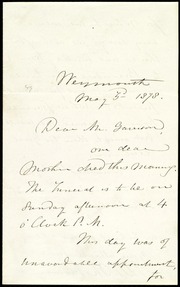 Weymouth
May 3d 1878.
Dear Mr. Garrison,
our dear
Mother died this morning.
The Funeral is to be on
Sunday afternoon at 4
o'Clock P.M.
This day was of
unavoidable appointment,
for